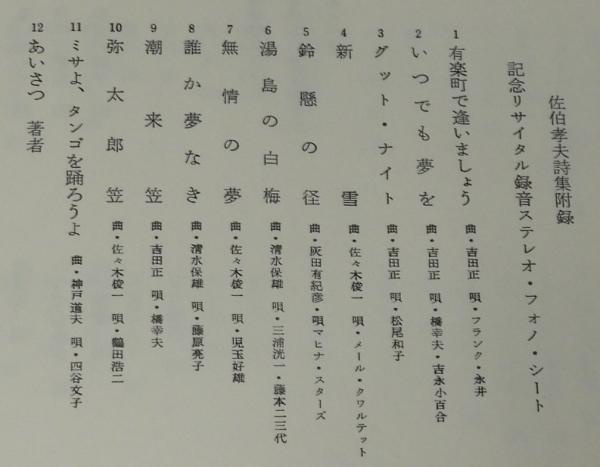 佐伯孝夫詩集附録
記念リサイタル録音ステレオ・フォノ・シート
1 有楽町で逢いましょう 曲・吉田正 唄・フランク・永井
2 いつでも夢を 曲・吉田正 唄・橋幸夫・吉永小百合
3 グット・ナイト 曲・吉田正 唄・松尾和子
4 新雪 曲・佐々木俊一 唄・メール・クワルテット
5 鈴懸の径 曲・灰田有紀彦・唄マヒナ・スターズ
6 湯島の白梅 曲・清水保雄 唄・三浦洸一・藤本二三代
7 無情の夢 曲・佐々木俊一 唄・児玉好雄
8 誰か夢なき 曲・清水保雄 唄・藤原亮子
9 潮来笠 曲・吉田正 唄・橋幸夫
10 弥太郎笠 曲・佐々木俊一 唄・鶴田浩二
11 ミサよ、タンゴを踊ろうよ 曲・神戸道夫 唄・四谷文子
12 あいさつ 著者